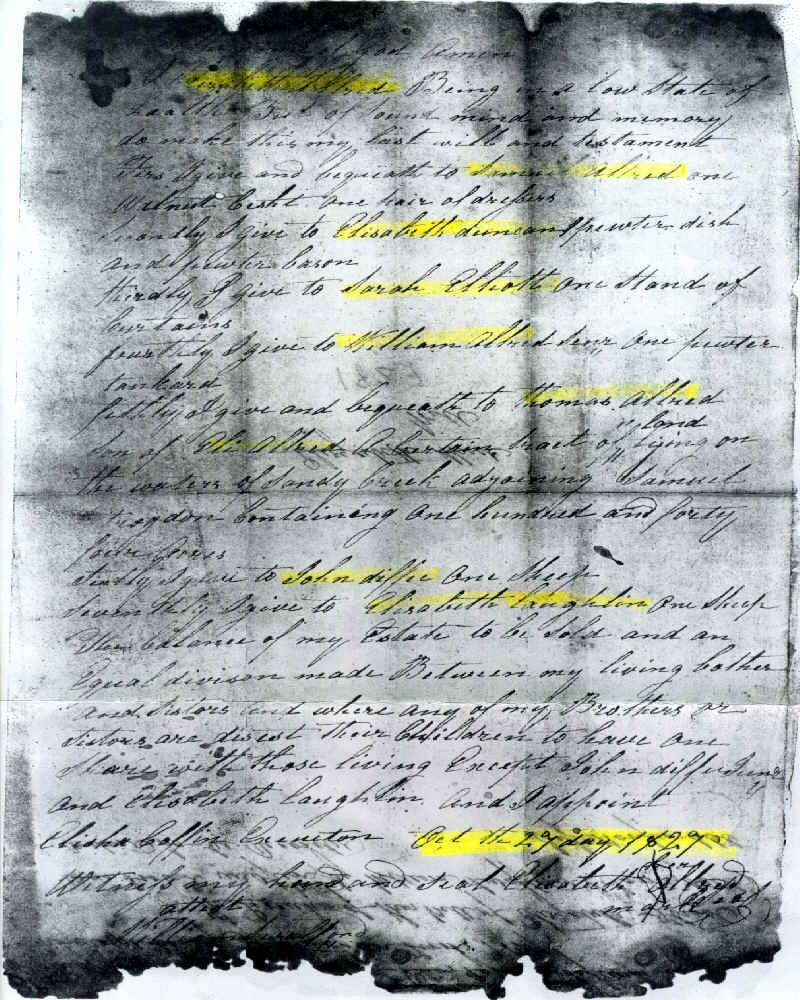 God Amen
I Elizabeth Allred Being in a low State of
health But of Sound mind and memory
do make this my last will and testament
Firs I give and bequeath to Allred one
Walnut Chest one pair of drawers
I give to Elisabeth duncan 1 pewter dish
and pewter bason
thirdly I give to Sarah Elliott One Stand of
Curtains
fourthly I give to William Allred Senr One pewter
tankard
fiftly I give and bequeath to Thomas Allred
Son of Allred A Certain tract of land lying on
the waters of Sandy Creek adjoining Samuel
Trogdon Containing One hundred and forty
four Acres
I give to John diffee One Sheep
Seventhly I give to Elizabeth Laughlin One Sheep
The balance of my Estate to be Sold and an
Equal divison made Between my living bother
and Sistors and where any of my Brothers or
Sistors are desest their Children to have one
Share with those living Except John diffee Junr
and Elisabeth laughlin And I appoint
Elisha Coffin Oct the 29 day 1829
Witness my hand and Seal Elisabeth Allred
attest